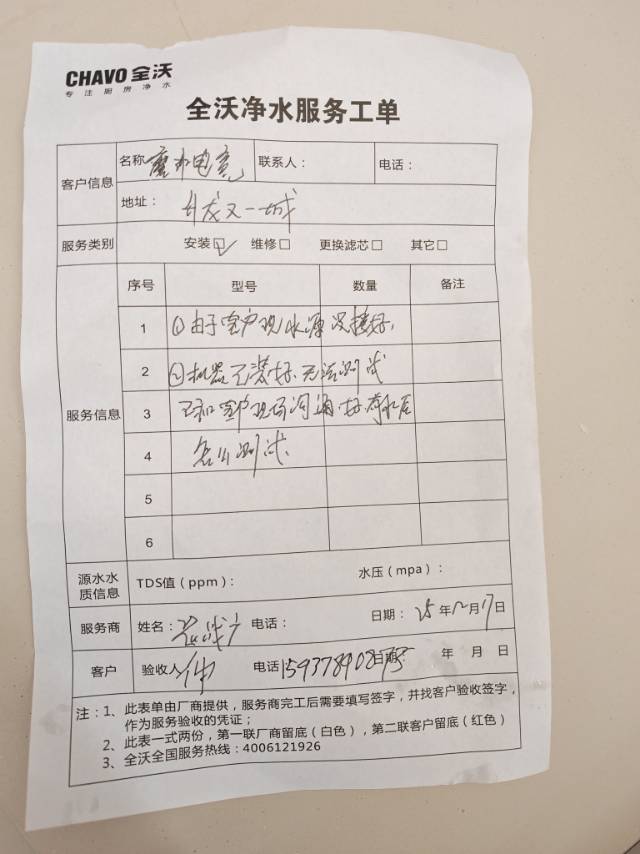 CHAVO 全沃
专注厨房净水
全沃净水服务工单
客户信息 名称 联系人： 电话：
地址： 又一城
服务类别 安装☑ 维修□ 更换滤芯□ 其它□
服务信息
序号 型号 数量 备注
1 ①由于客户现水源没接好.
2 ②机器已装好.无法测试
3 已和客户现场沟通好有水后
4 怎么测试.
5
6
源水水质信息 TDS值（ppm）： 水压（mpa）：
服务商 姓名： 电话： 日期：25年12月17日
客户 验收人 电话 日期： 年 月 日
注：1、此表单由厂商提供，服务商完工后需要填写签字，并找客户验收签字，
作为服务验收的凭证；
2、此表一式两份，第一联厂商留底（白色），第二联客户留底（红色）
3、全沃全国服务热线：4006121926